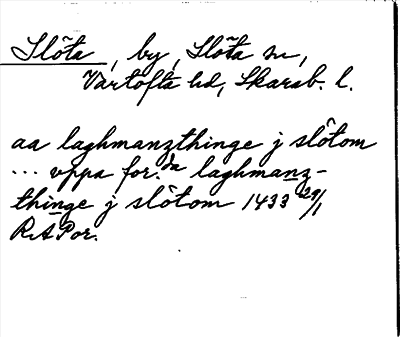 Slöta, by, Slöta sn,
Vartofta hd, Skarab. l.
aa laghmanzthinge j slôtom
... vppa for:da laghmanz-
thinge j slôtom 1433 29/1
RAPor.